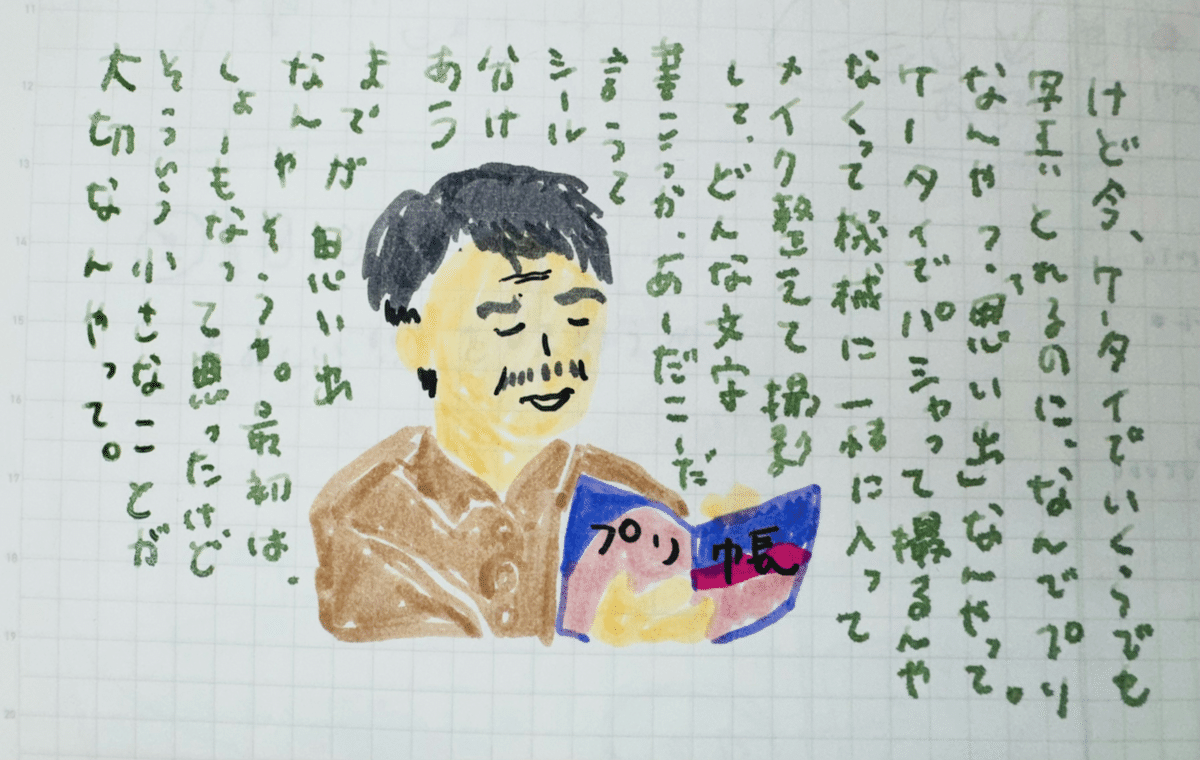 けど今、ケータイでいくらでも
写真とれるのに、なんでプリ
なんやっ、思い出なんやって。
ケータイでパシャって撮るんや
なくって機械に一緒に入って
メイク整えて撮影
して、どんな文字
書こっか、あーだこーだ
言って
シール
分け
あう
までが思い出
なんやそうか。最初は、
しょーもなって思ったけど
そういう小さなことが
大切なんやって。
プリ帳